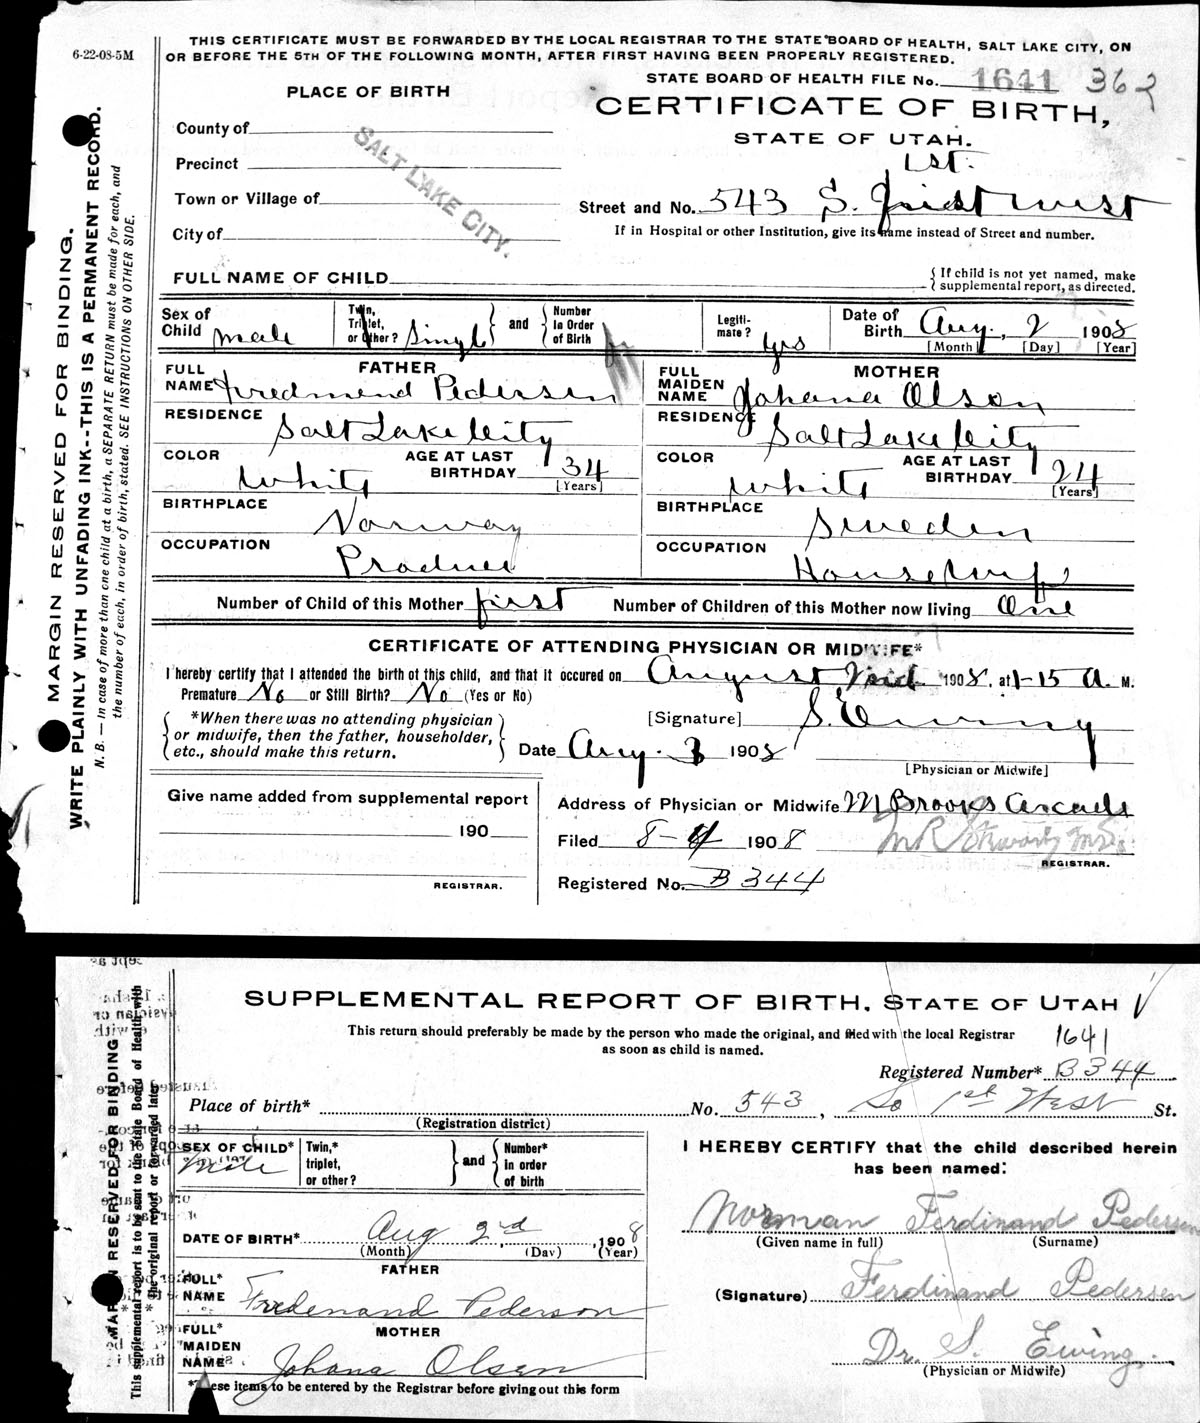 6-22-08-5M
THIS CERTIFICATE MUST BE FORWARDED BY THE LOCAL REGISTRAR TO THE STATE BOARD OF HEALTH, SALT LAKE CITY, ON
OR BEFORE THE 5TH OF THE FOLLOWING MONTH, AFTER FIRST HAVING BEEN PROPERLY REGISTERED.
STATE BOARD OF HEALTH FILE No. 1641 362
PLACE OF BIRTH
CERTIFICATE OF BIRTH,
STATE OF UTAH.
County of
Precinct
Town or Village of
City of
SALT LAKE CITY.
1st.
Street and No. 543 S. First West
If in Hospital or other Institution, give its name instead of Street and number.
FULL NAME OF CHILD
{If child is not yet named, make
supplemental report, as directed.
Sex of Child male
Twin, Triplet, or Other? Single } and { Number In Order of Birth
Legiti-mate? yes
Date of Birth Aug. 2 1908
[Month] [Day] [Year]
FATHER
FULL NAME Fredmend Pedersen
RESIDENCE Salt Lake City
COLOR White
AGE AT LAST BIRTHDAY 34 [Years]
BIRTHPLACE Norway
OCCUPATION Produce
MOTHER
FULL MAIDEN NAME Johana Olson
RESIDENCE Salt Lake City
COLOR White
AGE AT LAST BIRTHDAY 24 [Years]
BIRTHPLACE Sweden
OCCUPATION Housewife
Number of Child of this Mother first Number of Children of this Mother now living One
CERTIFICATE OF ATTENDING PHYSICIAN OR MIDWIFE*
I hereby certify that I attended the birth of this child, and that it occured on August 2nd 1908, at 1-15 A. M.
Premature No or Still Birth? No (Yes or No)
{*When there was no attending physician
or midwife, then the father, householder,
etc., should make this return.}
[Signature] S. Ewing
Date Aug. 3 1908
[Physician or Midwife]
Give name added from supplemental report
190
REGISTRAR.
Address of Physician or Midwife M Brooks Arcade
Filed 8-4 1908
M R Stewart M.D.
REGISTRAR.
Registered No. B 344
MARGIN RESERVED FOR BINDING.
WRITE PLAINLY WITH UNFADING INK--THIS IS A PERMANENT RECORD.
N. B. — In case of more than one child at a birth, a SEPARATE RETURN must be made for each, and
the number of each, in order of birth, stated. SEE INSTRUCTIONS ON OTHER SIDE.
SUPPLEMENTAL REPORT OF BIRTH, STATE OF UTAH
This return should preferably be made by the person who made the original, and filed with the local Registrar
as soon as child is named.
1641
Registered Number* B 344
Place of birth* No. 543, So 1st West St.
(Registration district)
SEX OF CHILD* Male
Twin,* triplet, or other? } and { Number* in order of birth
DATE OF BIRTH* Aug 2nd, 1908
(Month) (Day) (Year)
FATHER
FULL* NAME Fredenand Pederson
MOTHER
FULL* MAIDEN NAME* Johana Olsen
*These items to be entered by the Registrar before giving out this form
I HEREBY CERTIFY that the child described herein
has been named:
Norman Ferdinand Pedersen
(Given name in full) (Surname)
(Signature) Ferdinand Pedersen
Dr. S. Ewing.
(Physician or Midwife)
MARGIN RESERVED FOR BINDING
This supplemental report is to be sent to the State Board of Health with
the original report or forwarded later